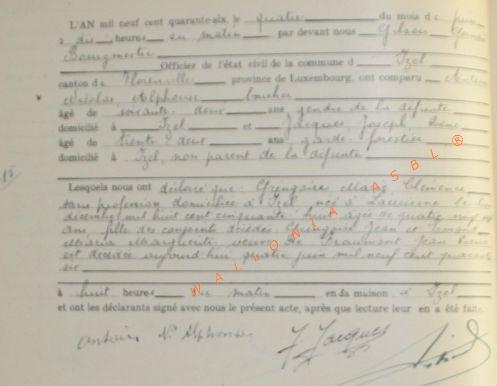 L'AN mil neuf cent quarante-six, le quatre du mois de juin
à dix heures du matin par devant nous Gilson
Bourgmestre Officier de l'état civil de la commune d Izel
canton de Florenville province de Luxembourg, ont comparu Antoine
Nicolas, Alphonse
âgé de soixante-deux ans gendre de la défunte
domicilié à Izel et Jacques, Joseph,
âgé de trente-deux ans garde forestier
domicilié à Izel, non parent de la défunte
Lesquels nous ont déclaré que: Grengoire Marie Clémence
sans profession domiciliée à Izel, née à Lacuisine le
décembre mil huit cent cinquante-huit âgée de quatre vingt
ans, fille des conjoints décédés Grengoire Jean et
Maria Marguerite, veuve De Beaumont Jean
est décédée aujourd'hui, quatre juin mil neuf cent quarante
six
à huit heures du matin en sa maison à Izel
et ont les déclarants signé avec nous le présent acte, après que lecture leur en a été faite.
Antoine N. Alphonse J. Jacques
WALLONIA ASBL ®